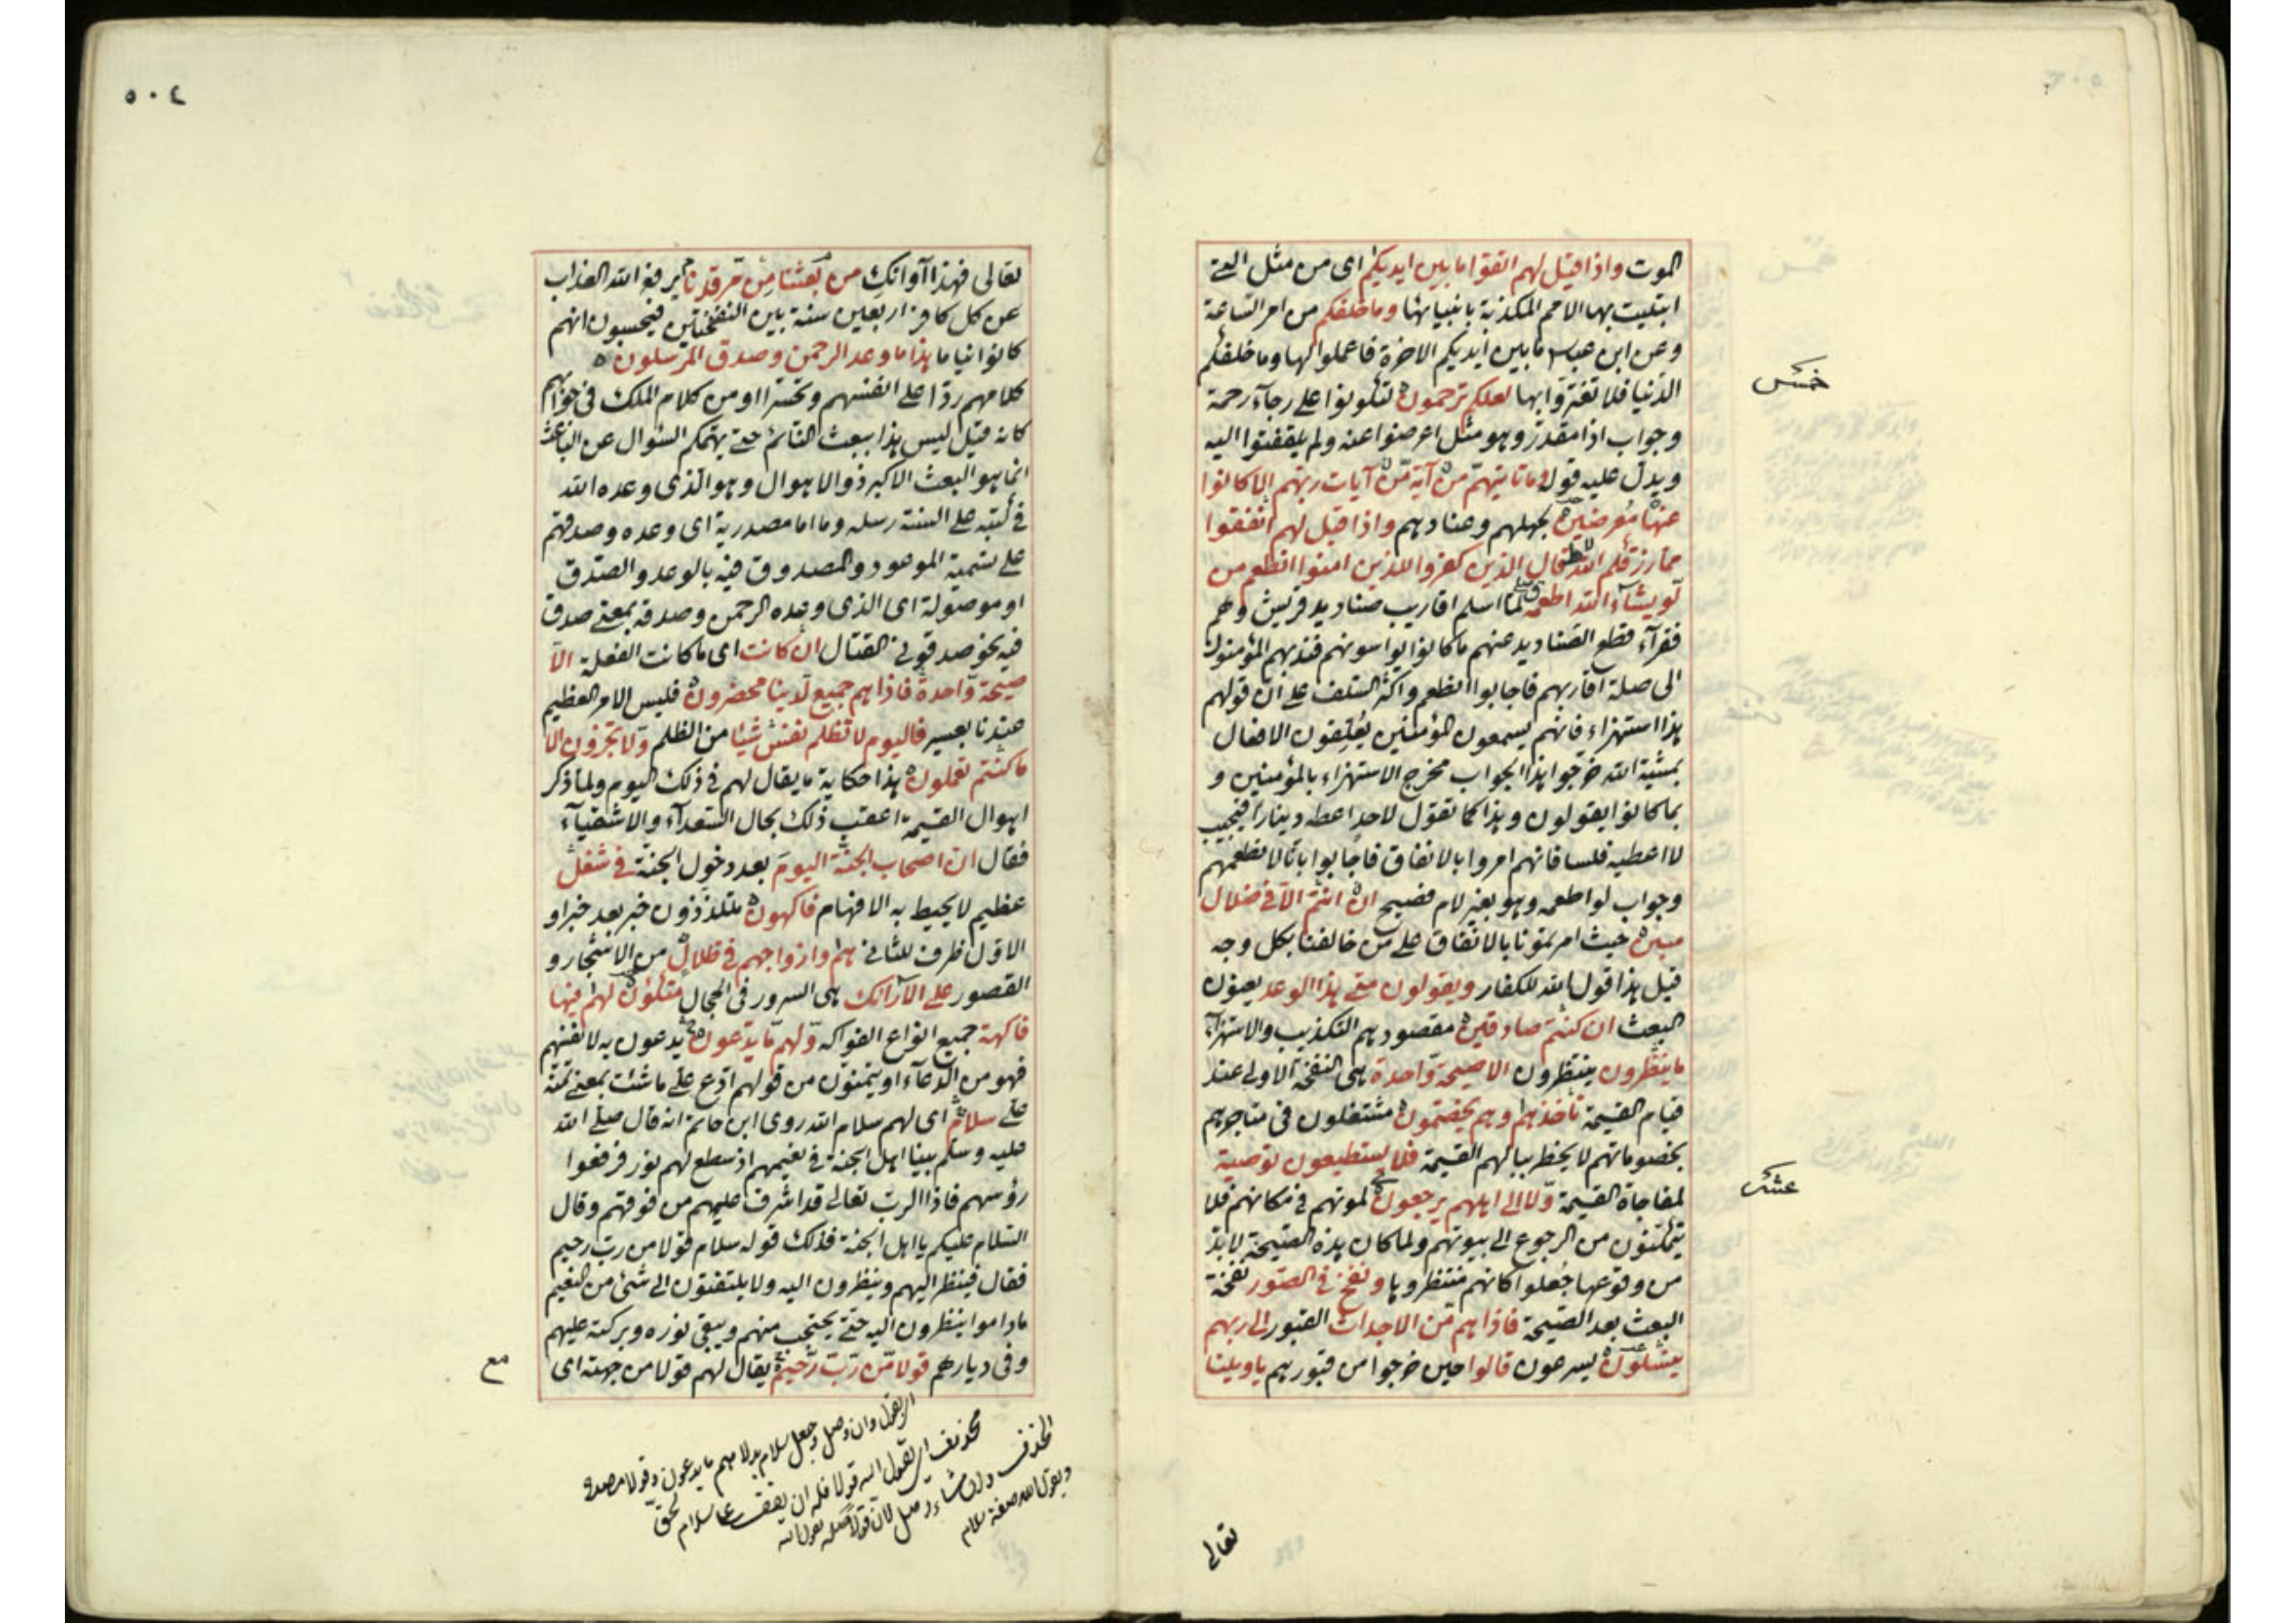 الموت واذا قيل لهم اتقوا ما بين ايديكم اى من مثل التى
ابتليت بها الامم المكذبة بانبيائها وما خلفكم من امر الساعة
وعن ابن عباس ما بين ايديكم الاخرة فاعملوا لها وما خلفكم
الدنيا فلا تغتروا بها لعلكم ترحمون لتكونوا على رجآء رحمة
وجواب اذا مقدر وهو مثل اعرضوا عنه ولم يلتفتوا اليه
ويدل عليه قوله وما تاتيهم من آية من آيات ربهم الا كانوا
عنها معرضين بجهلهم وعنادهم واذا قيل لهم انفقوا
مما رزقكم الله قال الذين كفروا للذين امنوا انطعم من
لو يشآء الله اطعمه لما اسلم اقاريب صناديد قريش وهم
فقرآء قطع الصناديد عنهم ما كانوا يواسونهم فندبهم المؤمنون
الى صلة اقاربهم فاجابوا انطعم واكثر السلف على ان قولهم
هذا استهزاء فانهم يسمعون المؤمنين يعلقون الافعال
بمشية الله خرجوا هذا الجواب مخرج الاستهزاء بالمؤمنين و
بما كانوا يقولون وهذا كما تقول لاحد اعطه دينارا فيجيب
لا اعطيه فلسا فانهم امروا بالانفاق فاجابوا بانا لا نطعمهم
وجواب لو اطعمه وهو بغير لام فصيح ان انتم الا فى ضلال
مبين حيث امرتمونا بالانفاق على من خالفنا بكل وجه
قيل هذا قول الله للكفار ويقولون متى هذا الوعد يعنون
البعث ان كنتم صادقين مقصودهم التكذيب والاستهزآء
ما ينظرون ينتظرون الا صيحة واحدة هى النفخة الاولى عند
قيام القيمة تأخذهم وهم يخصمون مشتغلون فى متاجرهم
بخصوماتهم لا يخطر ببالهم القيمة فلا يستطيعون توصية
لمفاجاة القيمة ولا الى اهلهم يرجعون لموتهم فى مكانهم فلا
يتمكنون من الرجوع الى بيوتهم ولما كان هذه الصيحة لا بد
من وقوعها جعلوا كانهم منتظروها ونفخ فى الصور نفخة
البعث بعد الصيحة فاذا هم من الاجداث القبور الى ربهم
ينسلون يسرعون قالوا حين خرجوا من قبورهم يا ويلنا
خمس
عشر
تعالى
٥٠٤
تعالى فهذا آوانك من بعثنا من مرقدنا يرفع الله العذاب
عن كل كافر اربعين سنة بين النفختين فيحسبون انهم
كانوا نياما هذا ما وعد الرحمن وصدق المرسلون
كلامهم ردا على انفسهم وتحسرا او من كلام الملك فى جوابهم
كانه قيل ليس هذا ببعث النائم حتى يهمكم السئوال عن الباعث
انما هو البعث الاكبر ذو الاهوال وهو الذى وعده الله
فى كتبه على السنة رسله وما اما مصدرية اى وعده وصدقهم
على تسمية الموعود والمصدوق فيه بالوعد والصدق
او موصولة اى الذى وعده الرحمن وصدقه بمعنى صدق
فيه نحو صدقونى القتال ان كانت اى ما كانت الفعلة الا
صيحة واحدة فاذا هم جميع لدينا محضرون فليس الامر العظيم
عندنا بعسير فاليوم لا تظلم نفس شيئا من الظلم ولا تجزون الا
ما كنتم تعملون هذا حكاية ما يقال لهم فى ذلك اليوم ولما ذكر
اهوال القيمة اعقب ذلك بحال السعدآء والاشقيآء
فقال ان اصحاب الجنة اليوم بعد دخول الجنة فى شغل
عظيم لا يحيط به الافهام فاكهون متلذذون خبر بعد خبر او
الاول ظرف للثانى هم وازواجهم فى ظلال من الاشجار و
القصور على الآرائك هى السرور فى الحجال متكئون لهم فيها
فاكهة جميع انواع الفواكه ولهم ما يدعون يدعون به لانفسهم
فهو من الدعآء او يتمنون من قولهم ادع على ما شئت بمعنى تمنه
على سلام اى لهم سلام الله روى ابن حاتم انه قال صلى الله
عليه وسلم بينا اهل الجنة فى نعيمهم اذ سطع لهم نور فرفعوا
رؤسهم فاذا الرب تعالى قد اشرف عليهم من فوقهم وقال
السلام عليكم يا اهل الجنة فذلك قوله سلام قولا من رب رحيم
فقال فينظر اليهم وينظرون اليه ولا يلتفتون الى شئ من النعيم
ما داموا ينظرون اليه حتى يحتجب منهم ويبقى نوره وبركته عليهم
وفى ديارهم قولا من رب رحيم يقال لهم قولا من جهته اى
مع
وان وصل وجعل سلام بدلا ما يدعون وقولا مصدر
محذوف اى يقول الله قولا فله ان يقف على سلام